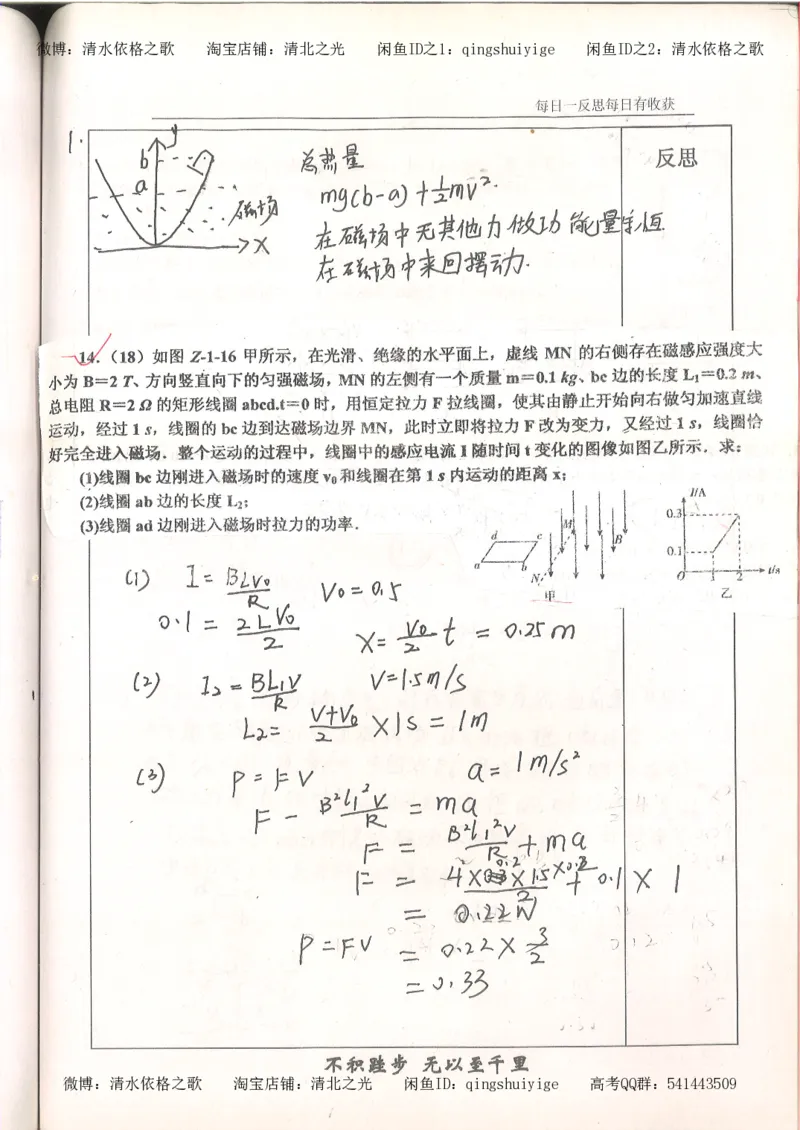 微博：清水依格之歌 淘宝店铺：清北之光 闲鱼ID之1：qingshuiyige 闲鱼ID之2：清水依格之歌
每日一反思每日有收获
1.
y
b
a
磁场
x
总热量
mg(b-a)+½mv².
在磁场中无其他力做功 能量守恒
在磁场中来回摆动.
反思
14.（18）如图 Z-1-16 甲所示，在光滑、绝缘的水平面上，虚线 MN 的右侧存在磁感应强度大
小为 B=2 T、方向竖直向下的匀强磁场，MN 的左侧有一个质量 m=0.1 kg、bc 边的长度 L₁=0.2 m、
总电阻 R=2 Ω 的矩形线圈 abcd.t=0 时，用恒定拉力 F 拉线圈，使其由静止开始向右做匀加速直线
运动，经过 1 s，线圈的 bc 边到达磁场边界 MN，此时立即将拉力 F 改为变力，又经过 1 s，线圈恰
好完全进入磁场．整个运动的过程中，线圈中的感应电流 I 随时间 t 变化的图像如图乙所示．求：
(1)线圈 bc 边刚进入磁场时的速度 v₀ 和线圈在第 1 s 内运动的距离 x；
(2)线圈 ab 边的长度 L₂；
(3)线圈 ad 边刚进入磁场时拉力的功率．
d c M B a b N 甲
I/A 0.3 0.1 O 1 2 t/s 乙
(1) I = BLv₀/R V₀=0.5
0.1 = 2LV₀/2 X= V₀/2 t = 0.25m
(2) I₂ = BL₁V/R V=1.5m/s
L₂= (V+V₀)/2 ×1s = 1m
(3) P=FV a= 1m/s²
F - B²L₁²V/R = ma
F = B²L₁²V/R + ma
F = 4×0.2×1.5×0.2/2 + 0.1 × 1
= 0.22N
P=FV = 0.22× 3/2
= 0.33
不积跬步 无以至千里
微博：清水依格之歌 淘宝店铺：清北之光 闲鱼ID：qingshuiyige 高考QQ群：541443509